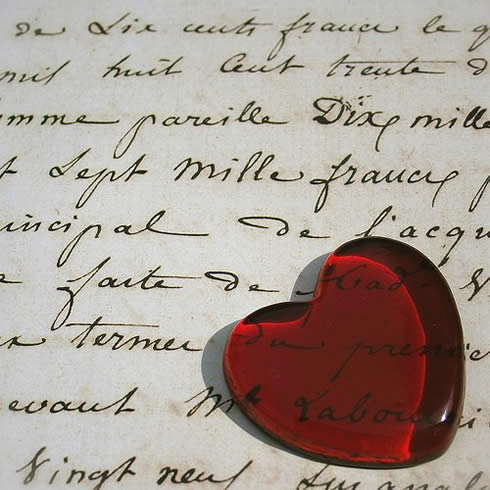 de Six cents francs le
mil huit Cent trente
pareille Dix mille
Sept Mille francs
principal de l'acqu
faite de Mad.
termes du premie
devant Me Labou
Vingt neuf